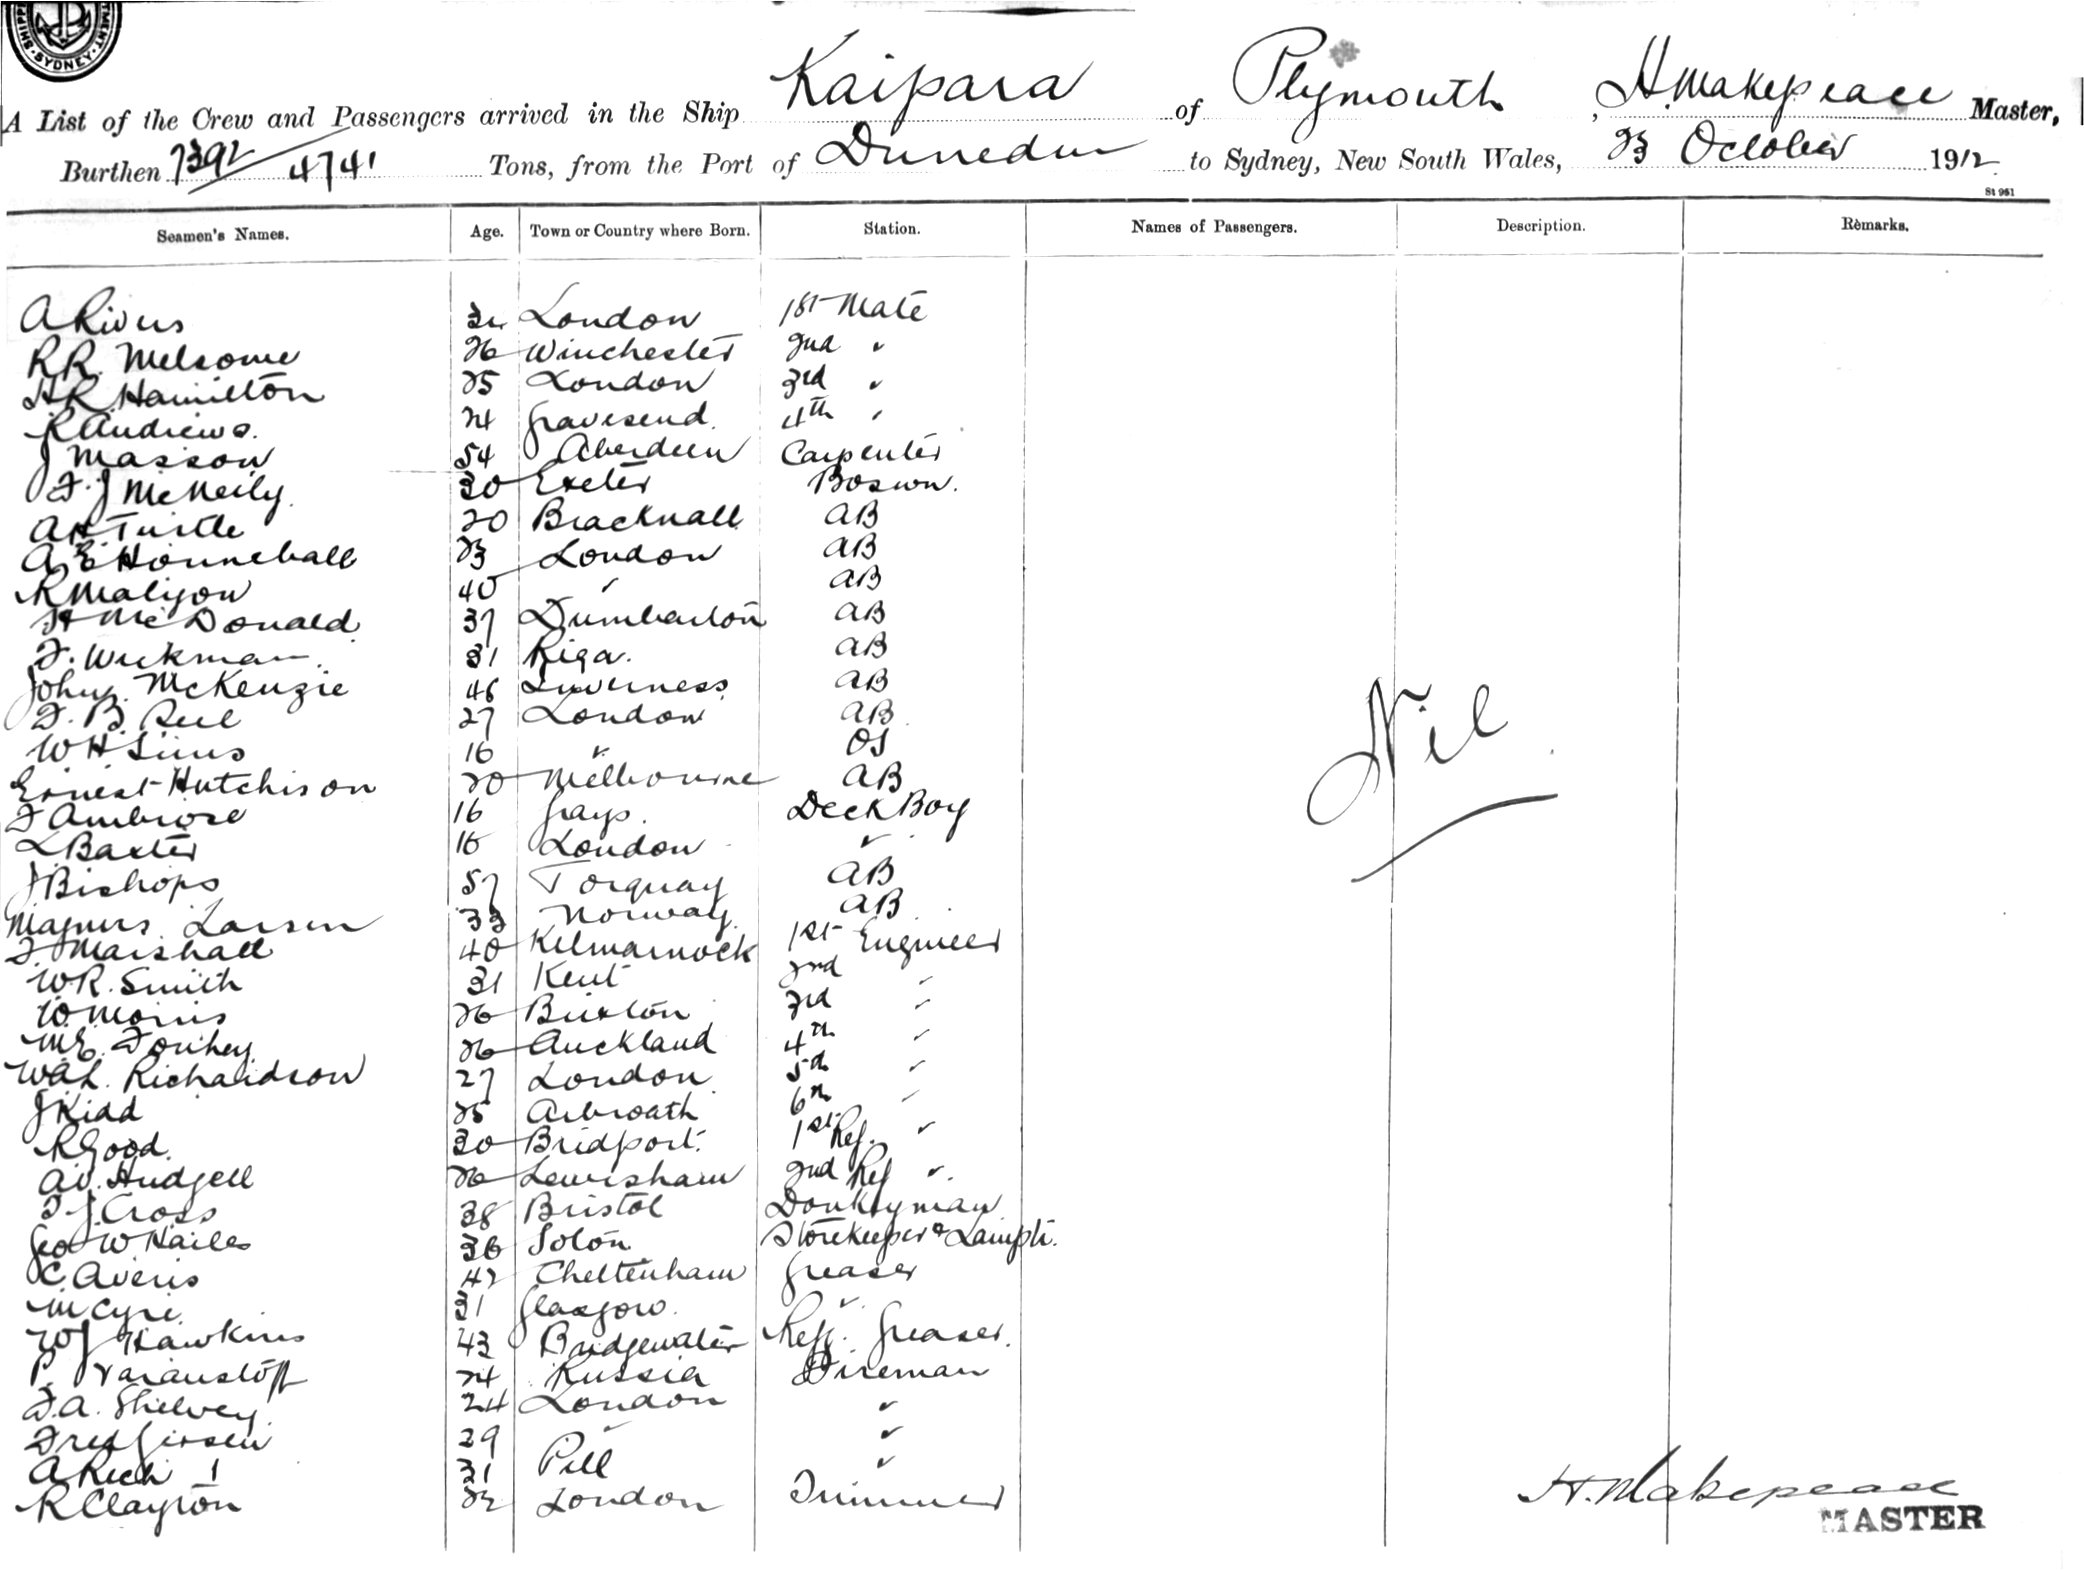 SYDNEY
A List of the Crew and Passengers arrived in the Ship Kaipara of Plymouth, H. Makepeace Master,
Burthen 7392 4741 Tons, from the Port of Dunedin to Sydney, New South Wales, 23 October 1912
St 951
Seamen's Names. Age. Town or Country where Born. Station. Names of Passengers. Description. Remarks.
A Rivers London 1st Mate
R.R. Melsome 26 Winchester 2nd "
H.R. Hamilton 25 London 3rd "
R Andrews. 24 Gravesend. 4th "
J Masson 54 Aberdeen Carpenter
F. J McNeily. 30 Exeter Boswn.
A H Turtle 20 Bracknall AB
A. E. Honneball 23 London AB
R Maligon 40 " AB
H McDonald 37 Dumbarton AB
F. Wickman. 31 Riga. AB
John McKenzie 46 Inverness AB
F. B. 27 London AB
W H Sims 16 " OS
Ernest Hutchison 20 Melbourne AB
F Ambrose 16 Grays. Deck Boy
L Baxter 16 London "
J Bishops 57 Torquay AB
Magnus Larsen 33 Norway. AB
F. Marshall 40 Kilmarnock 1st Engineer
W.R. Smith 31 Kent 2nd "
W. Morris 26 Buxton 3rd "
M.E. Fouhey. 26 Auckland 4th "
W A L. Richardson 27 London 5th "
J Kidd 25 Arbroath 6th "
R Good. 30 Bridport. 1st Ref. "
A V. Hudgell 26 Lewisham 2nd Ref "
F J. Cross 38 Bristol Donkeyman
Geo W Hailes 36 Solon Storekeeper & Lamptr.
C. Averis 42 Cheltenham Greaser
M Cyre. 31 Glasgow. "
W J Hawkins 43 Bridgewater Refg. Greaser.
P. 24 Russia Fireman
F. A. Shelvey. 24 London "
Fred Jensen 29 " "
A Rich 31 Pill "
R Clayton 22 London Trimmer
Nil
H. Makepeace
MASTER